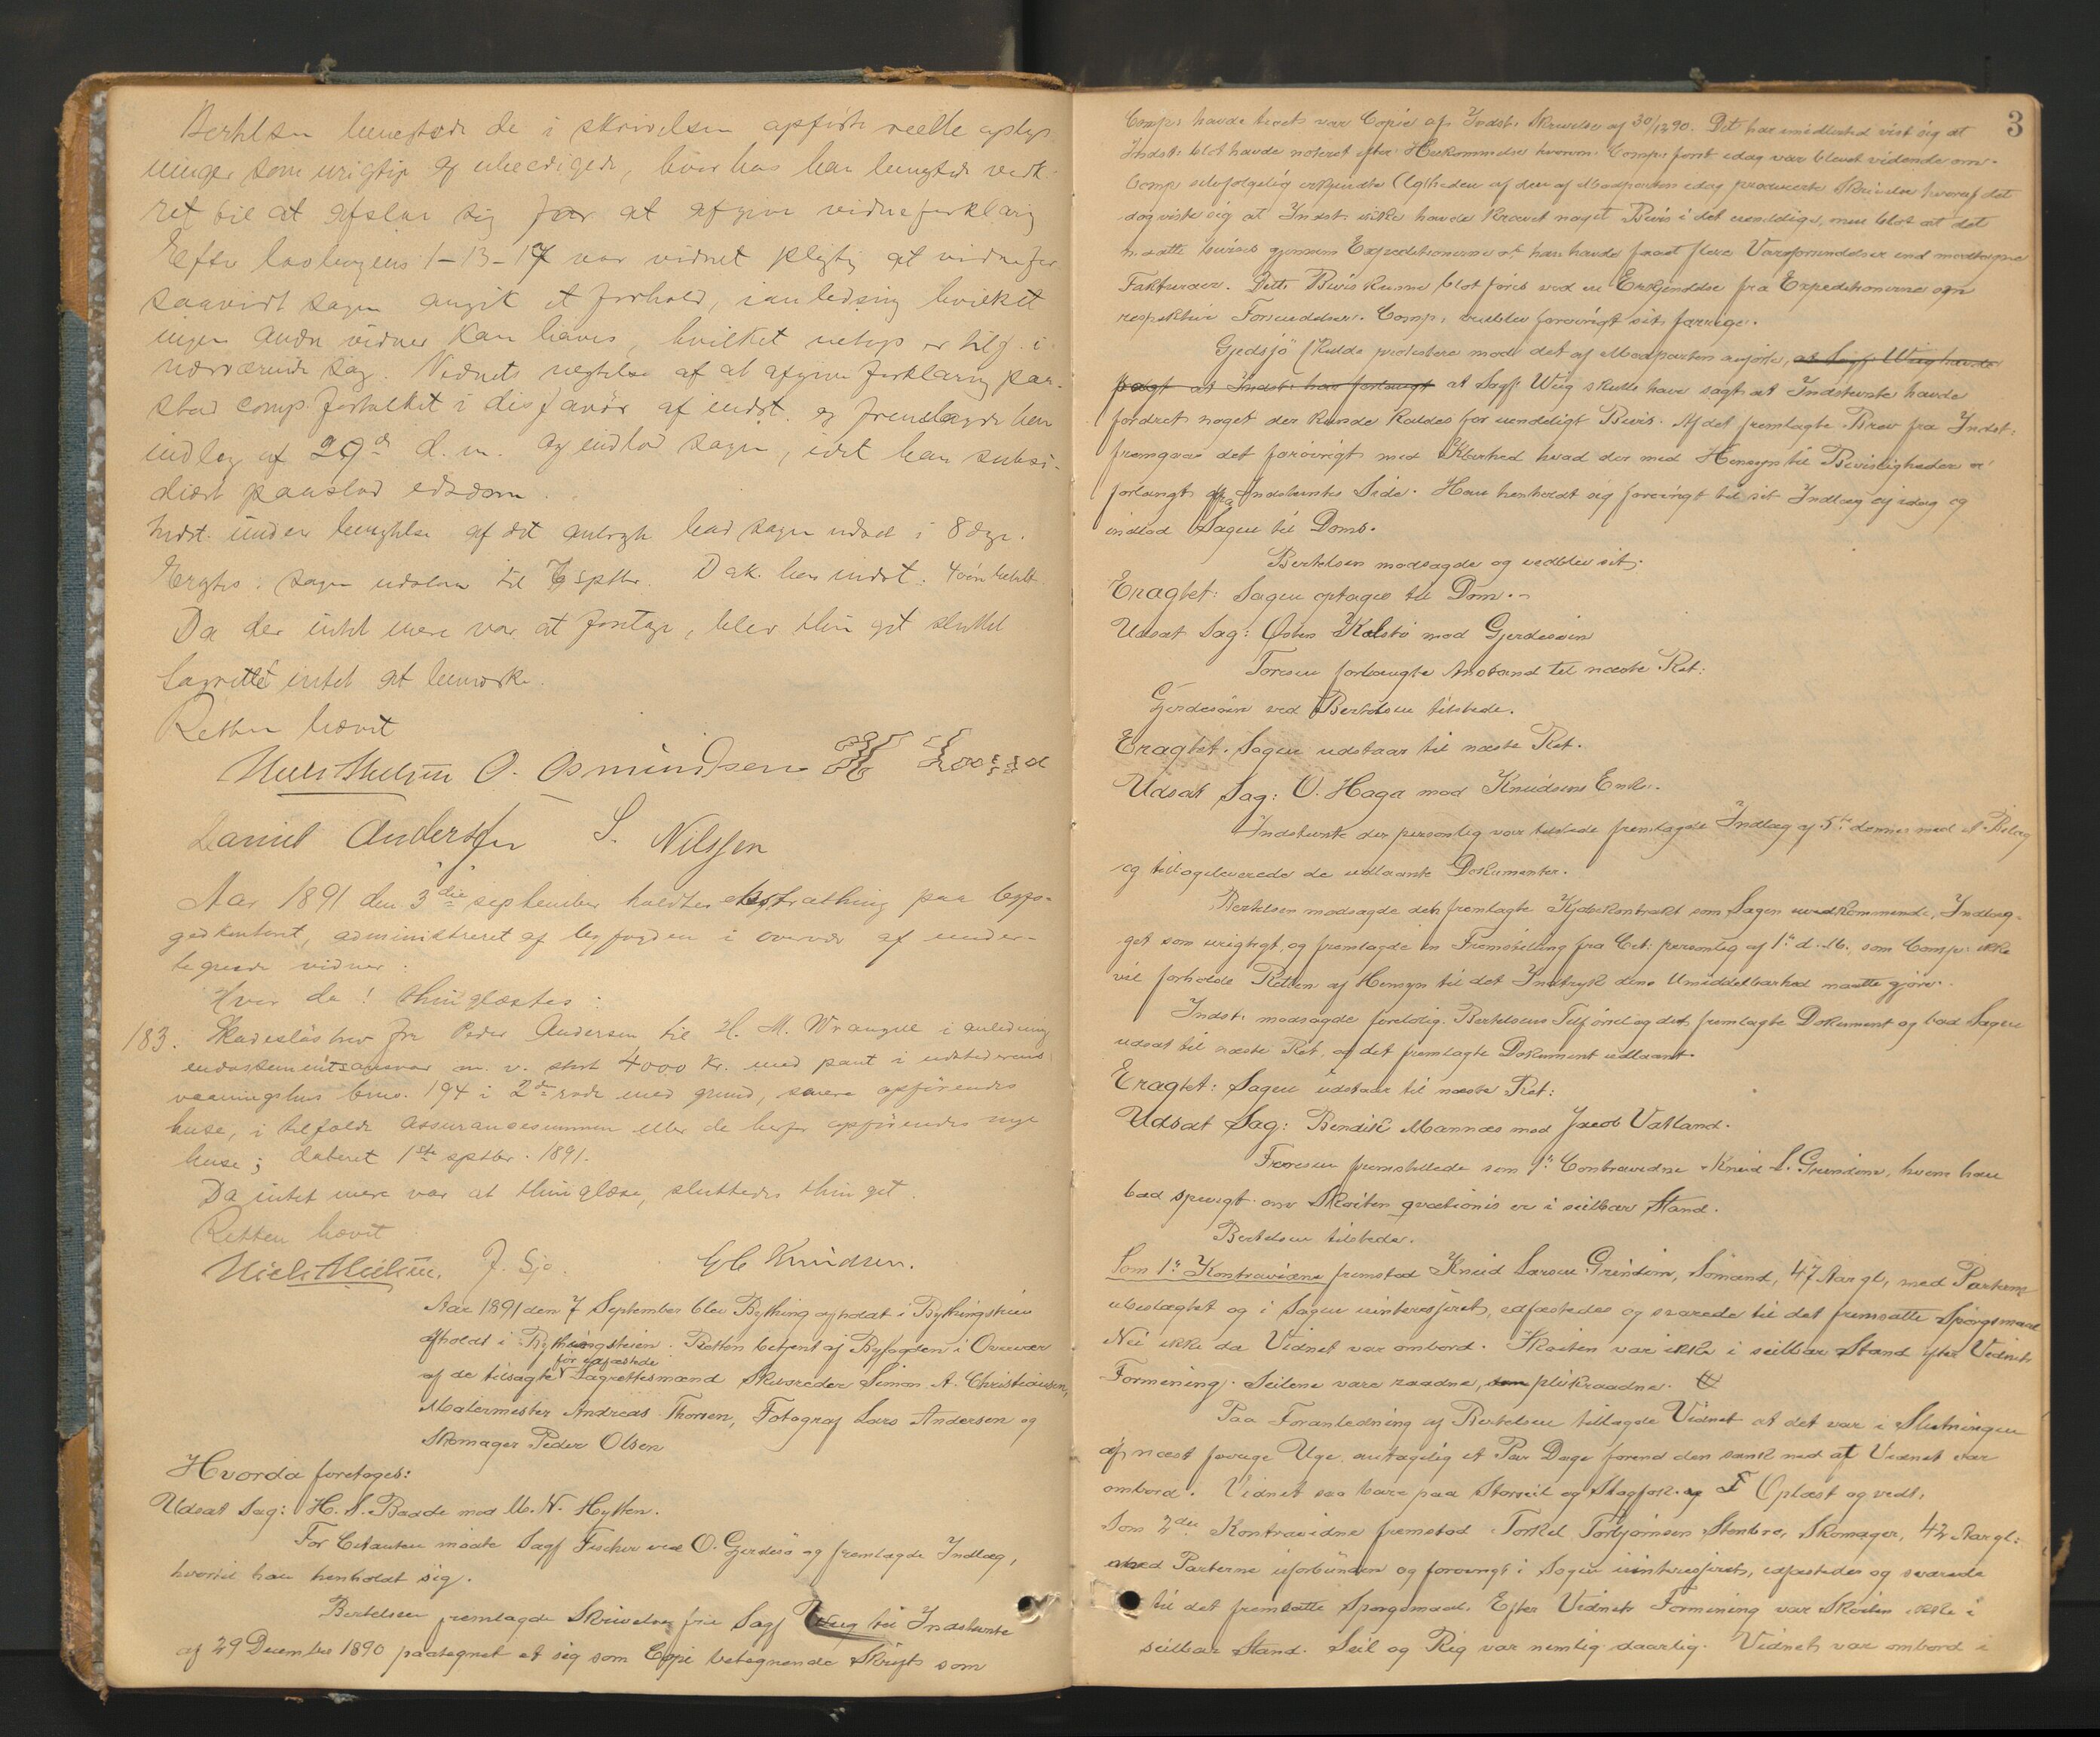 Bertelsen benegtede de i skrivelsen opførte reelle oplys
ninger som urigtige og ubeedigede, hvorhos han benegtede vedk.
ret til at afslaa sig for at afgive vidneforklaring
Efter lovbogens 1-13-17 var vidnet pligtig at vidne for
saavidt sagen angik et forhold, i anledning hvilket
ingen andre vidner kan haves, hvilket netop er tilf. i
nærværende sag. Vidnets negtelse af at afgive forklaring paa-
stod comp. fortolket i disfavør af indst. og fremlagde hen
indlæg af 29de d. m. og indlod sagen, idet han subsi-
diært paastod edsdom.
Indst. under benegtelse af det anbragte bad sagen udsat i 8 dage.
Eragtes: sagen udstaar til 7 septbr.
Da der intet mere var at foretage, blev thinget sluttet
Lagrettet intet at bemærke.
Retten hævet
O. Osmundsen
Daniel Andersen S. Nilssen
Aar 1891 den 3die september holdtes extrathing paa byfo-
gedkontoret, administreret af byfogden i overvær af under-
tegnede vidner:
Hvor da! thinglæstes:
183. Skadesløsbrev fra Peder Andersen til H. M. Wrangel i anledning
endossementsansvar m. v. stort 4000 kr. med pant i udstederens
vaaningshus brno. 194 i 2den rode med grund, senere opførendes
huse, i tilfælde assurancesummen eller de herfor opførendes nye
huse; dateret 1ste septbr. 1891.
Da intet mere var at thinglæse, sluttedes thinget.
Retten hævet
J. Sjo. Knudsen.
Aar 1891 den 7 September blev Bything afholdt i Bythingstuen
afholdt i Bythingstuen. Retten betjent af Byfogden i Overvær
af de tilsagte før edfæstede Lagrettesmænd Skrædder Simon A. Christiansen,
Malermester Andreas Thorsen, Fotograf Lars Andersen og
Skomager Peder Olsen
Hvorda foretoges:
Udsat Sag: H. S. Baade mod M. N. Hytten.
For Citanten mødte Sagf Fischer ved O. Gjerdesø og fremlagde Indlæg,
hvortil han henholdt sig.
Bertelsen fremlagde Skrivelse fra Sagf Wiig til Indstevnte
af 29 December 1890 paategnet et sig som Copi betegnende Skrift som
3
Comp: havde berets var Copie af Indst: Skrivelse af 30/12 90. Det har imidlertid vist sig at
Indst: blot havde noteret efter Hukommelse hvorom Comp: først idag var blevet vidende om.
Comp selvfølgelig erkjendte Ægtheden af den af Modparten idag producerte Skrivelse hvoraf det
dog viste sig at Indst. ikke havde krævet noget Bevis i det uendelige, men blot at det
maatte bevises gjennem Expeditionerne at han havde faaet flere Vareforsendelser end modtagne
Fakturaer. Dette Bevis kunne blot føres ved en Erkjendelse fra Expeditionerne om
respektive Forsendelser. Comp. vedblev forøvrigt sit forrige.
Gjedsjö skulde protestere mod det af Modparten anførte, at Sagf: Wiig havde
sagt at Indst: har forlangt at Sagf: Wiig skulde have sagt at Indstevnte havde
fordret noget der kunde kaldes for uendeligt Bevis. Af det fremlagte Brev fra Indst:
fremgaar det forøvrigt med Klarhed hvad der med Hensyn til Bevisligheder er
forlangt fra Indstevntes Side. Han henholdt sig forøvrigt til sit Indlæg af idag og
indlod Sagen til Doms.
Bertelsen modsagde og vedblev sit.
Eragtet: Sagen optages til Dom.
Udsat Sag: Østen Kalstø mod Gjerdesøen
Foresen forlangte Anstand til næste Ret:
Gjerdesøen ved Bertelsen tilstede.
Eragtet. Sagen udstaar til næste Ret.
Udsat Sag: O. Haga mod Knudsens Enke.
Indstevnte der personlig var tilstede fremlagde Indlæg af 5te dennes med et Bilag
og tilbageleverede de udlaante Dokumenter.
Bertelsen modsagde den fremlagte Kjøbekontrakt som Sagen uvedkommende, Indlæg-
get som urigtigt, og fremlagde en Fremstilling fra Cit: personlig af 1ste d. M., som Comp: ikke
vil forholde Retten af Hensyn til det Indtryk dens Umiddelbarhed maatte gjøre.
Indst: modsagde foreløbig Bertelsens Tilførsel og det fremlagte Dokument og bad Sagen
udsat til næste Ret, og det fremlagte Dokument udlaant.
Eragtet: Sagen udstaar til næste Ret:
Udsat Sag: Bendik Mannæs mod Jacob Valland.
Foresen fremstillede som 1ste Contravidne Knud L. Grindem, hvem han
bad spurgt om Skøiten qvætionis er i seilbar Stand.
Bertelsen tilstede.
Som 1ste Kontravidne fremstod Knud Larsen Grindem, Sømand, 47 Aar gl, med Parterne
ubeslægtet og i Sagen uinteresseret, edfæstedes og svarede til det fremsatte Spørgsmaal
Nei ikke da Vidnet var ombord. Skøiten var ikke i seilbar Stand efter Vidnets
Formening. Seilene vare raadne, som plukraadne.
Paa Foranledning af Bertelsen tillagde Vidnet at det var i Slutningen
af næst forrige Uge, antagelig et Par Dage førend den sank ned at Vidnet var
ombord. Vidnet saa bare paa Storseil og Stagfok. Oplæst og vedt.
Som 2det Kontravidne fremstod Torkel Torbjørnsen Stenbro, Skomager, 42 Aar gl:
med Parterne uforbunden og forøvrigt i Sagen uinteresseret, edfæstedes og svarede
til det fremsatte Spørgsmaal: Efter Vidnets Formening var Skøiten ikke i
seilbar Stand. Seil og Rig var nemlig daarlig. Vidnet var ombord i